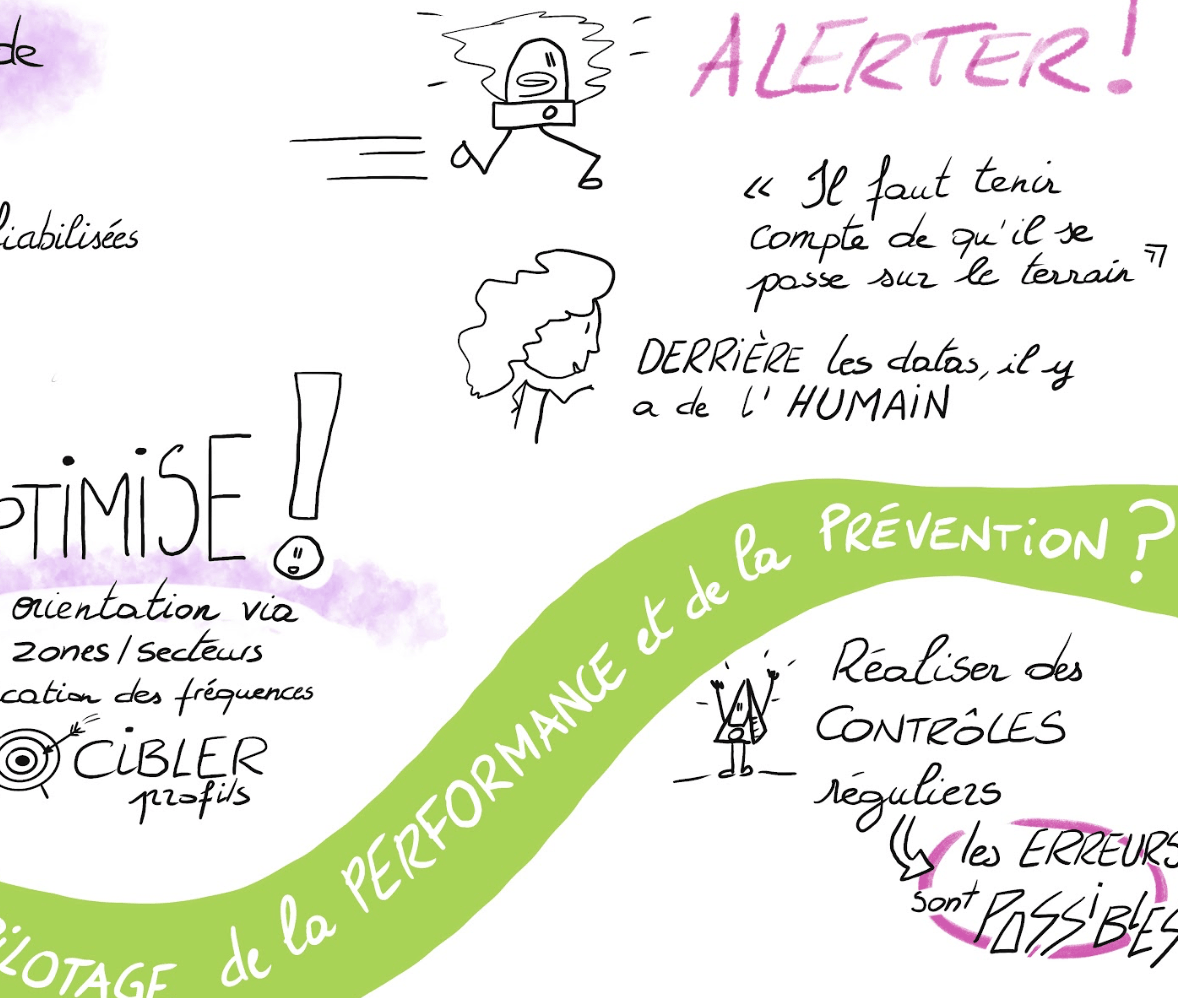 de
ALERTER!
« Il faut tenir
compte de qu'il se
passe sur le terrain "
liabilisées
DERRIÈRE les datas, il y
a de l' HUMAIN
PTIMISE !
orientation via
zones / secteurs
cation des fréquences
CIBLER
profils
PILOTAGE de la PERFORMANCE et de la PRÉVENTION ?
Réaliser des
CONTRÔLES
réguliers
les ERREURS
sont POSSIBLES